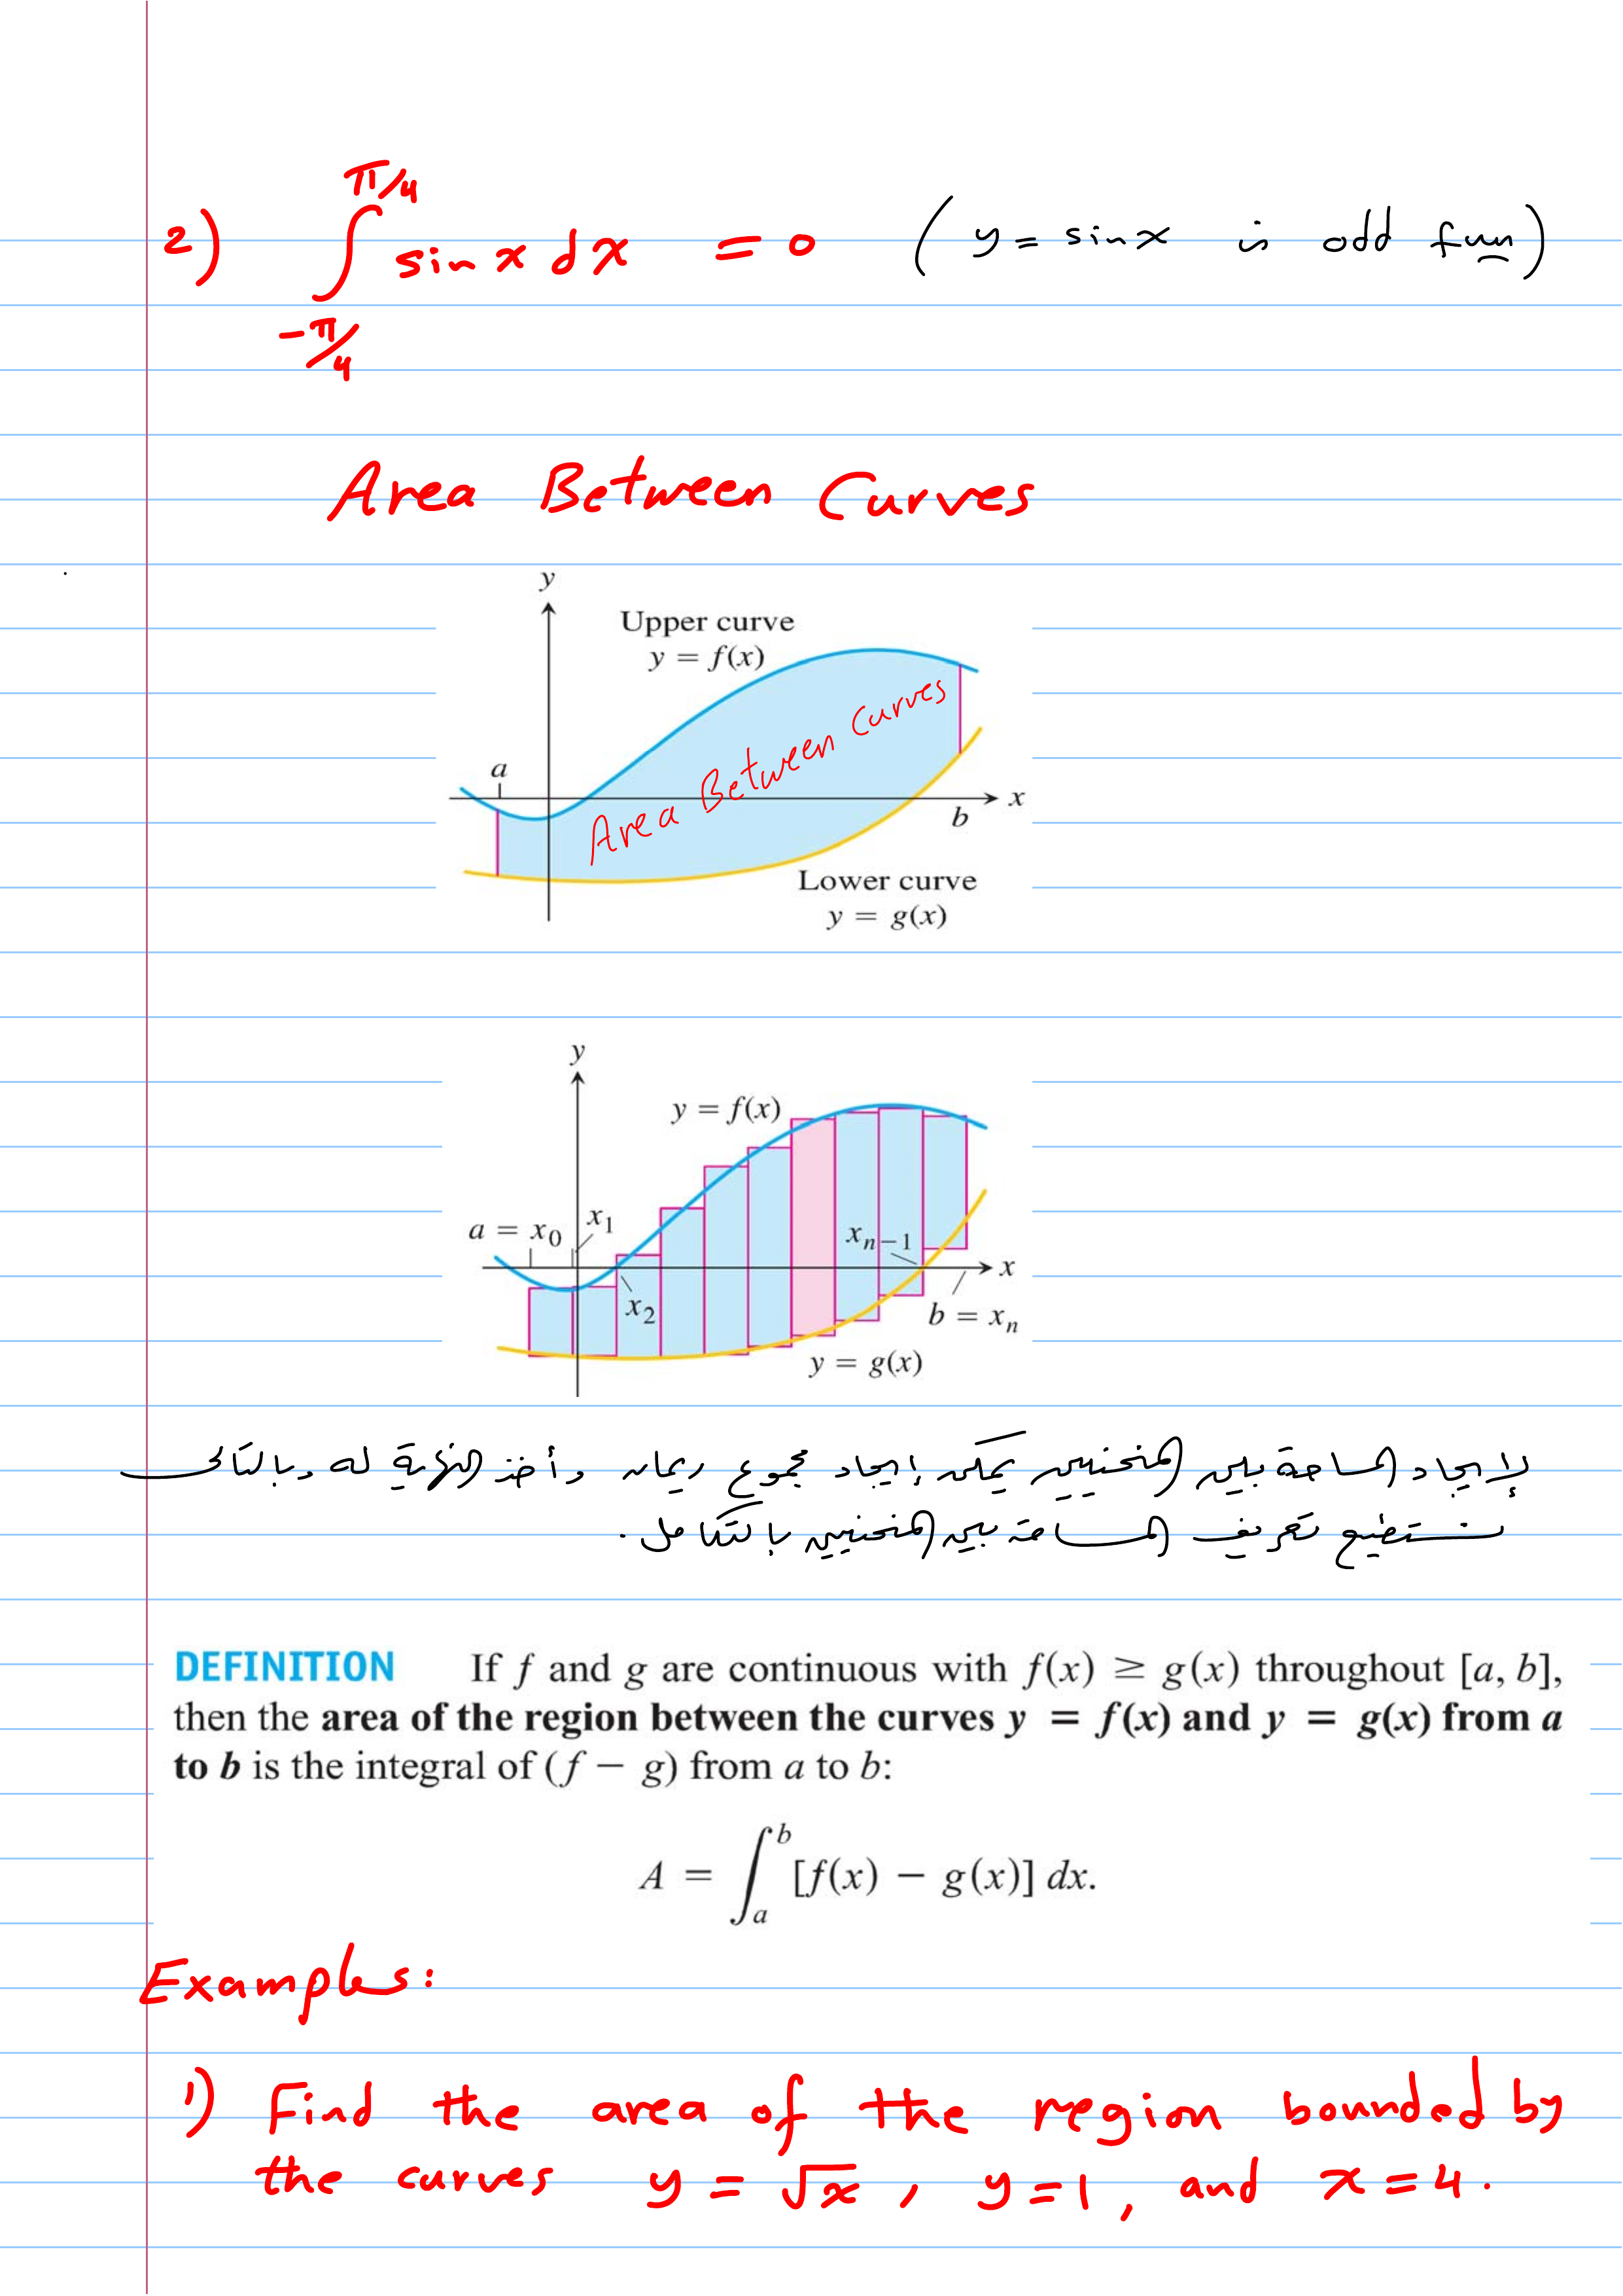 2) ∫_{-π/4}^{π/4} sin x dx = 0 (y = sin x is odd fun)
Area Between Curves
y
Upper curve
y = f(x)
Area Between Curves
a
x
b
Lower curve
y = g(x)
y
y = f(x)
a = x₀
x₁
xₙ₋₁
x
x₂
b = xₙ
y = g(x)
لإيجاد المساحة بين المنحنيين يمكن إيجاد مجموع ريمان وأخذ النهاية له وبالتالي
نستطيع تعريف المساحة بين المنحنيين بالتكامل.
DEFINITION If f and g are continuous with f(x) ≥ g(x) throughout [a, b],
then the area of the region between the curves y = f(x) and y = g(x) from a
to b is the integral of (f − g) from a to b:
A = ∫_a^b [f(x) − g(x)] dx.
Examples:
1) Find the area of the region bounded by
the curves y = √x, y = 1, and x = 4.